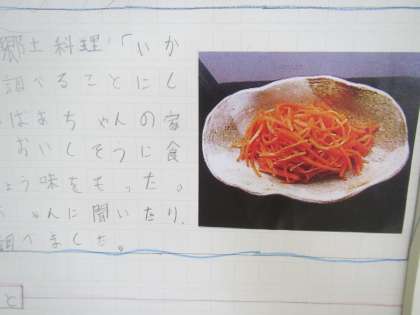 郷土料理「いか
調べることにし
ばあちゃんの家
おいしそうに食
ょう味をもった。
ゃんに聞いたり、
調べました。
と